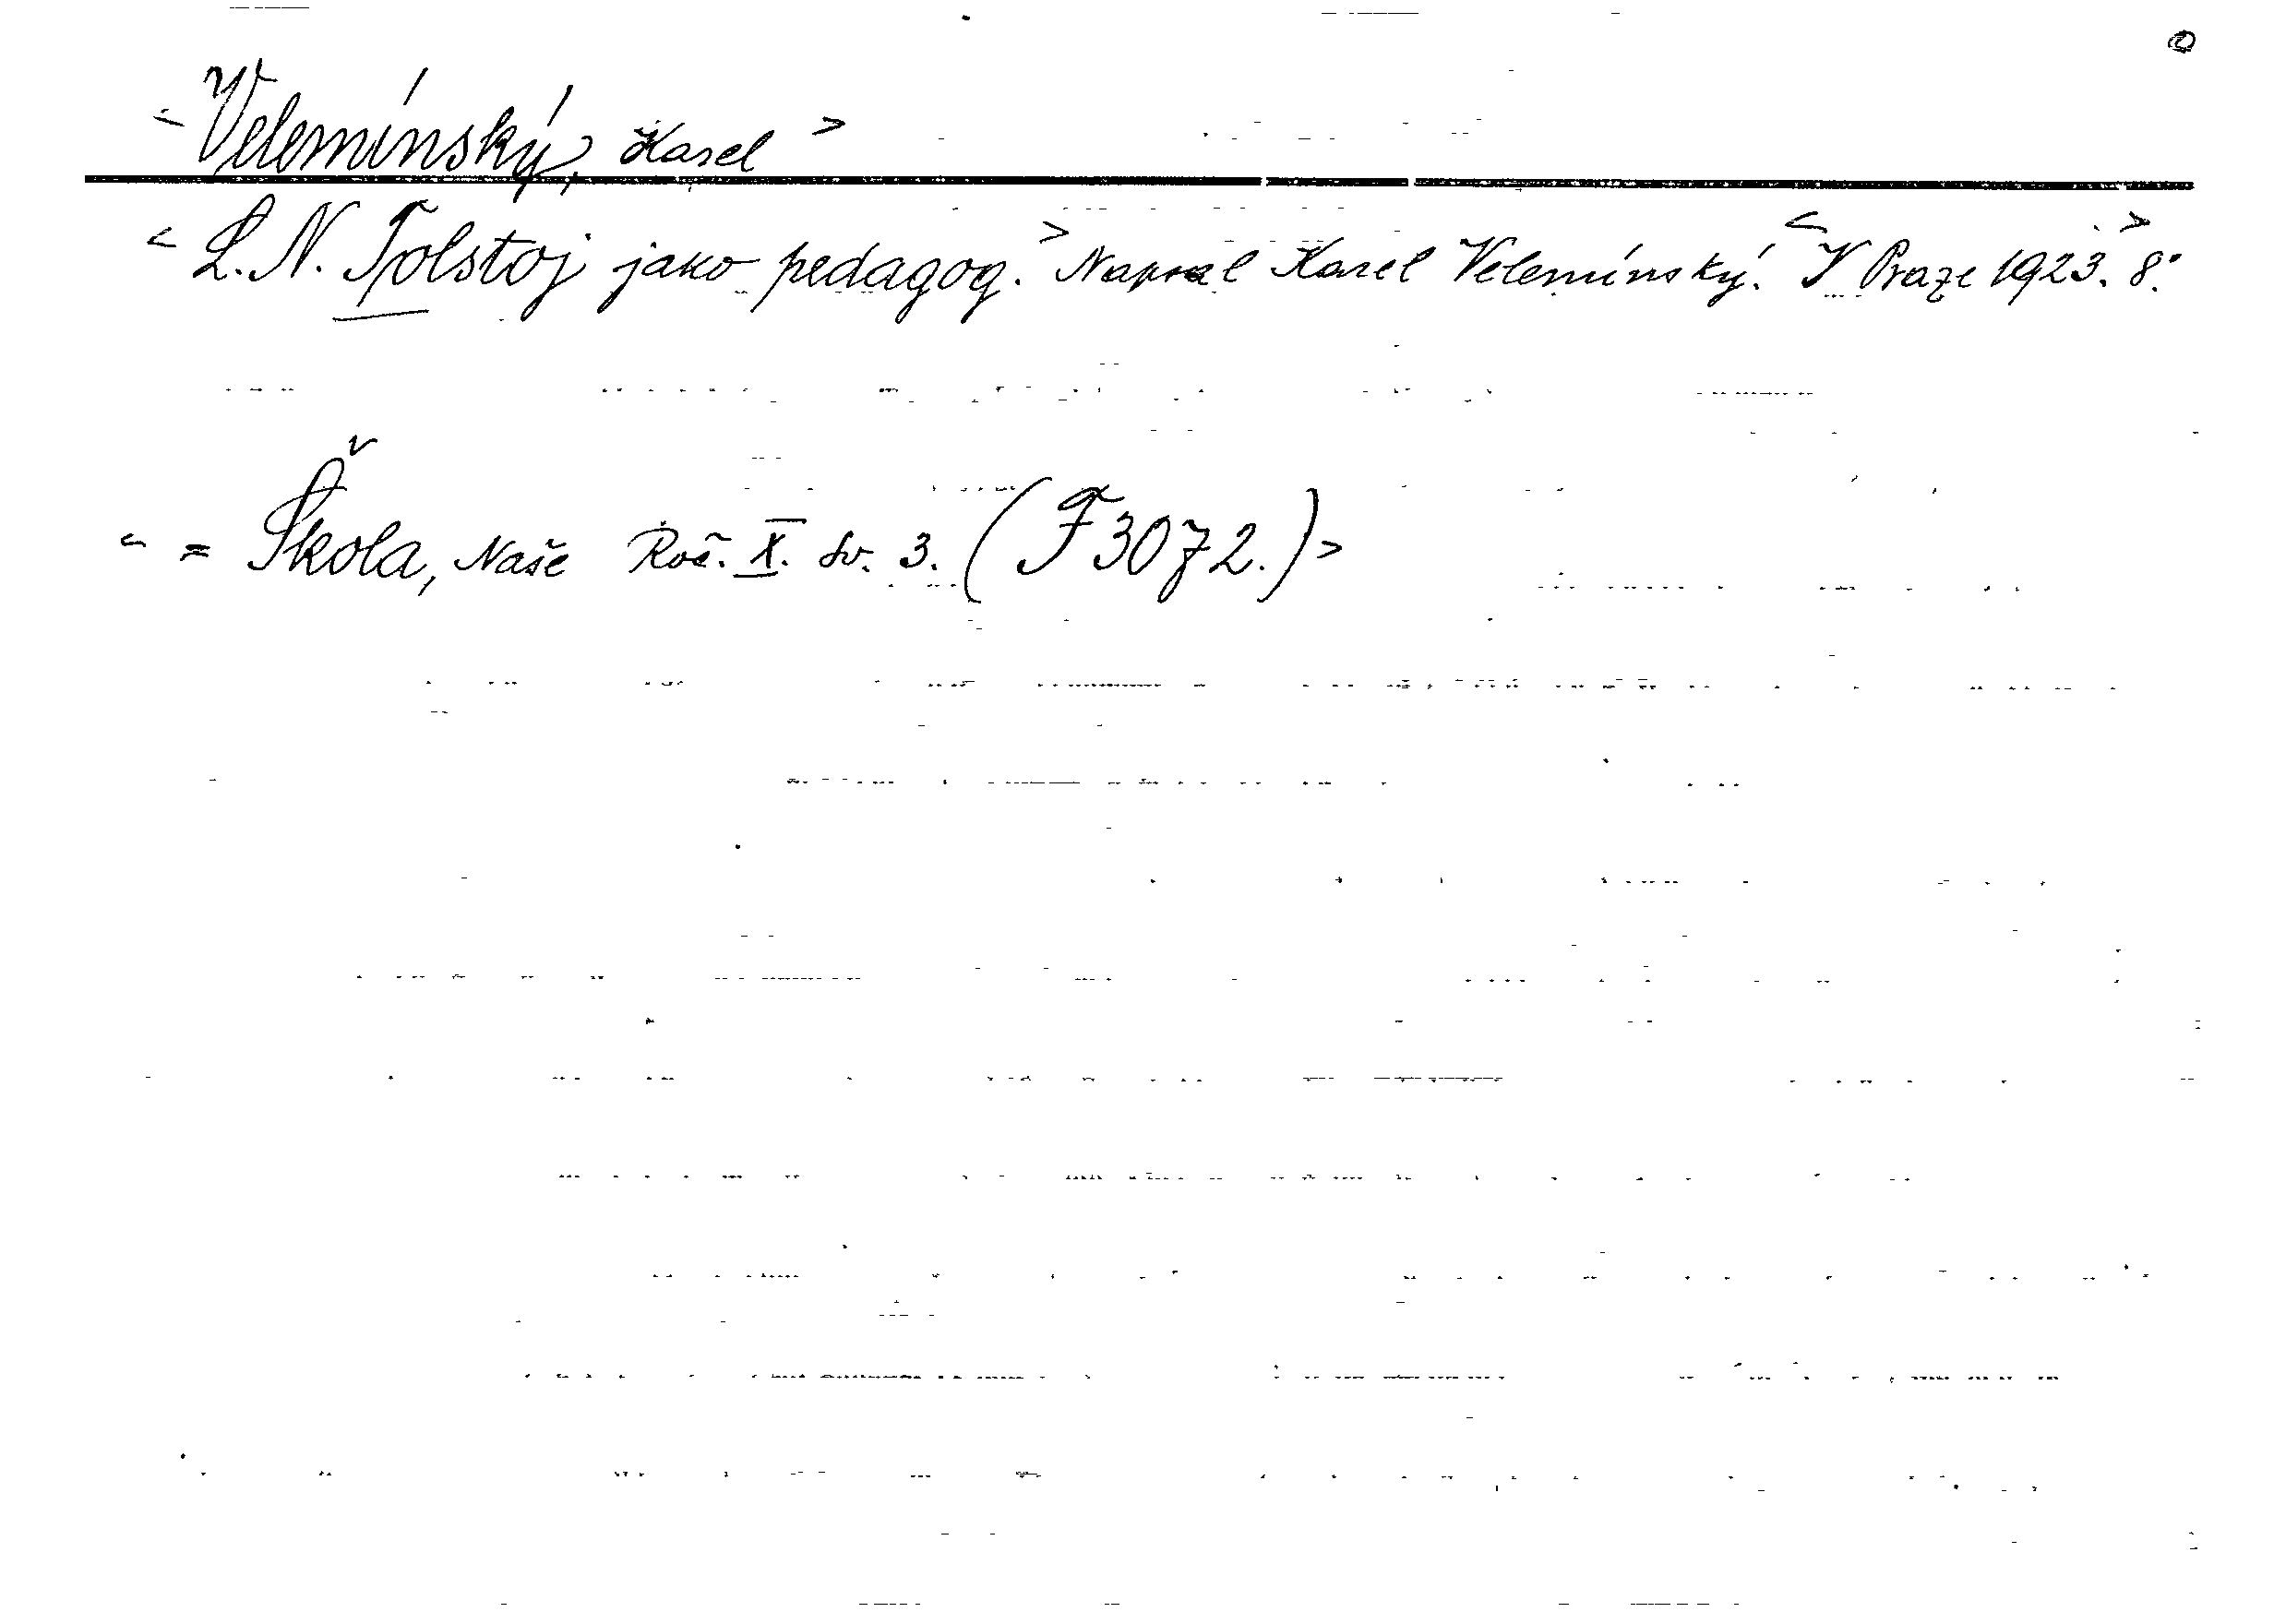 < Velemínský, Karel >
< L. N. Tolstoj jako pedagog. > Napsal Karel Velemínský. < V Praze 1923. 8°. >
< = Škola, Naše Roč. X. sv. 3. (F 3072.) >